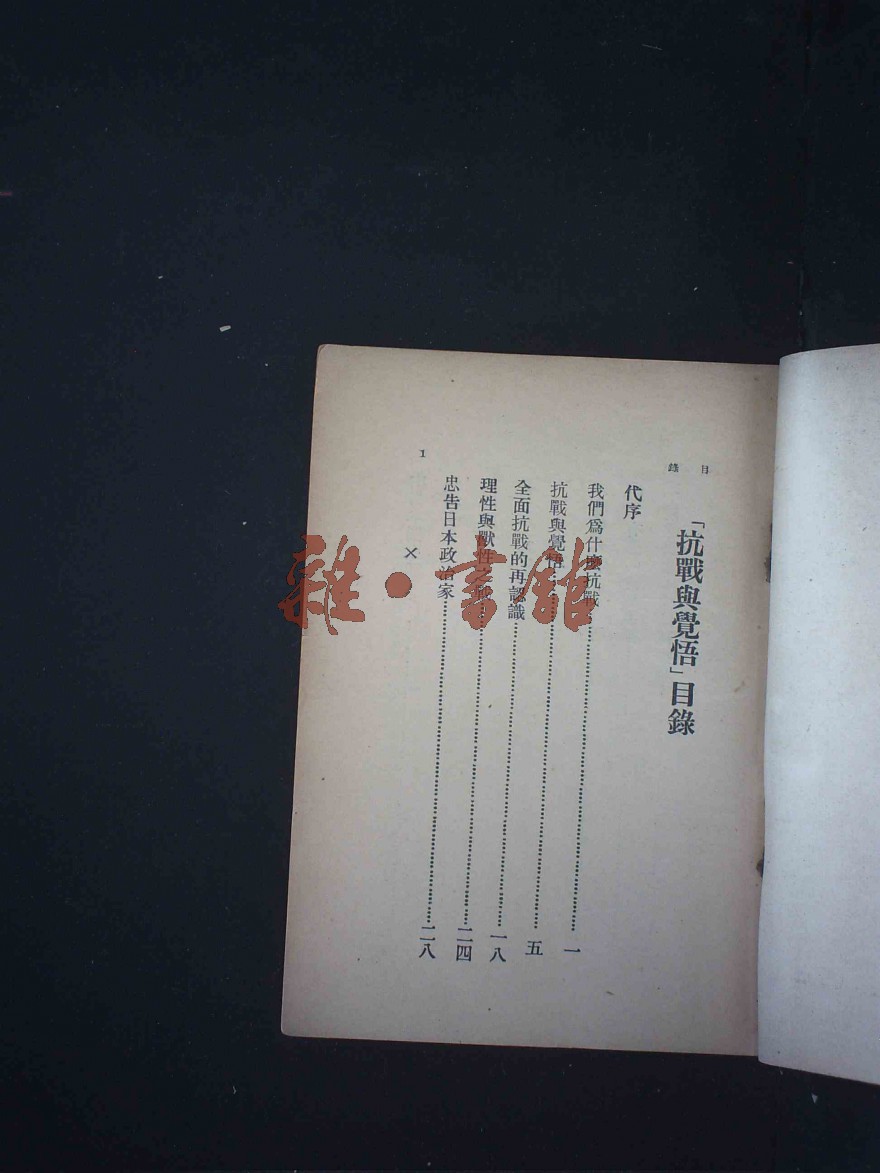 目錄
「抗戰與覺悟」目錄
代序
我們爲什麼抗戰……一
抗戰與覺悟……五
全面抗戰的再認識……一八
理性與獸性之戰……二四
忠告日本政治家……二八
×
1
雜·書館